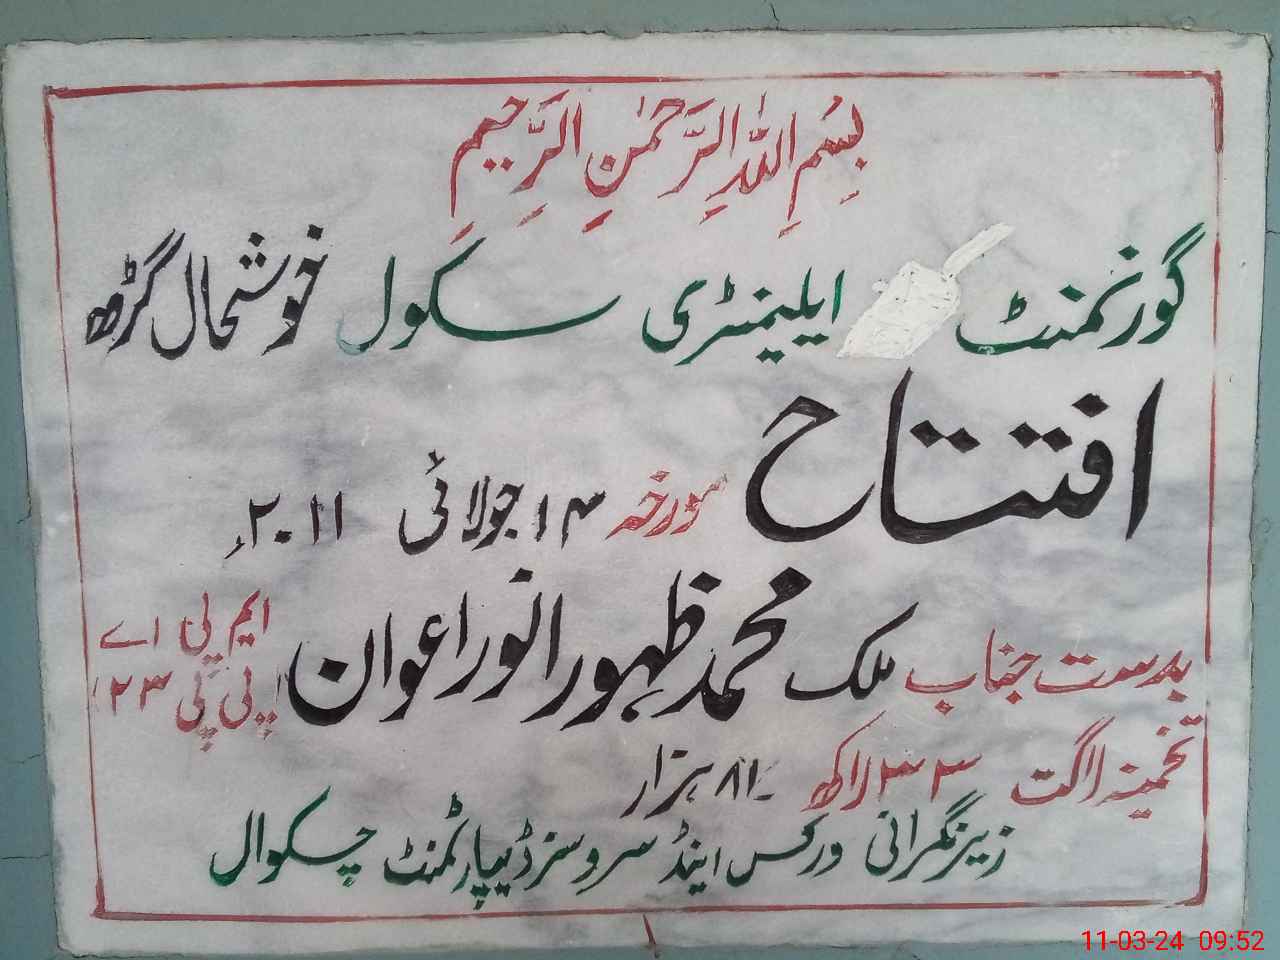 بِسْمِ اللّٰهِ الرَّحْمٰنِ الرَّحِيْمِ
گورنمنٹ ایلیمنٹری سکول خوشحال گڑھ
افتتاح مورخہ ۱۴ جولائی ۲۰۱۱ء
بدست جناب ملک محمد ظہور انور اعوان ایم پی اے پی پی ۲۳
تخمینہ لاگت ۳۳ لاکھ ۸۱ ہزار
زیر نگرانی ورکس اینڈ سروسز ڈیپارٹمنٹ چکوال
11-03-24 09:52